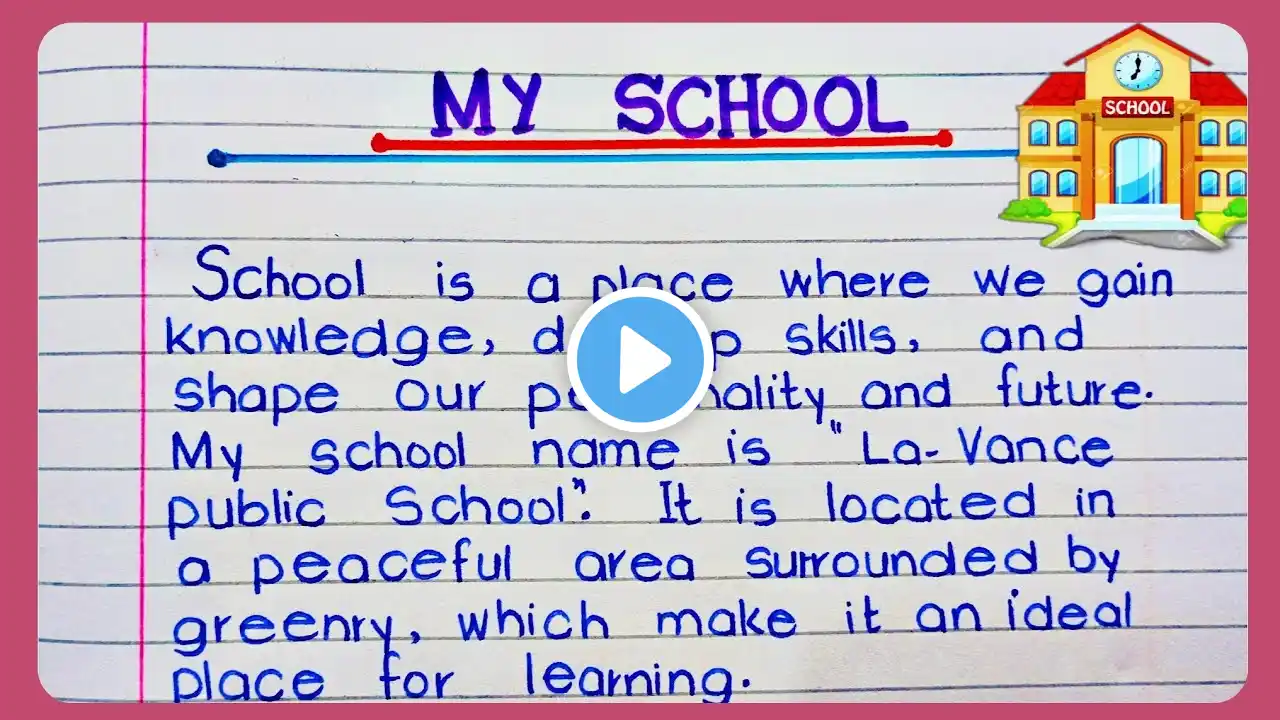 MY SCHOOL
SCHOOL
School is a place where we gain
knowledge, skills, and
shape our and future.
My school name is "La-Vance
public School". It is located in
a peaceful area surrounded by
greenry, which make it an ideal
place for learning.